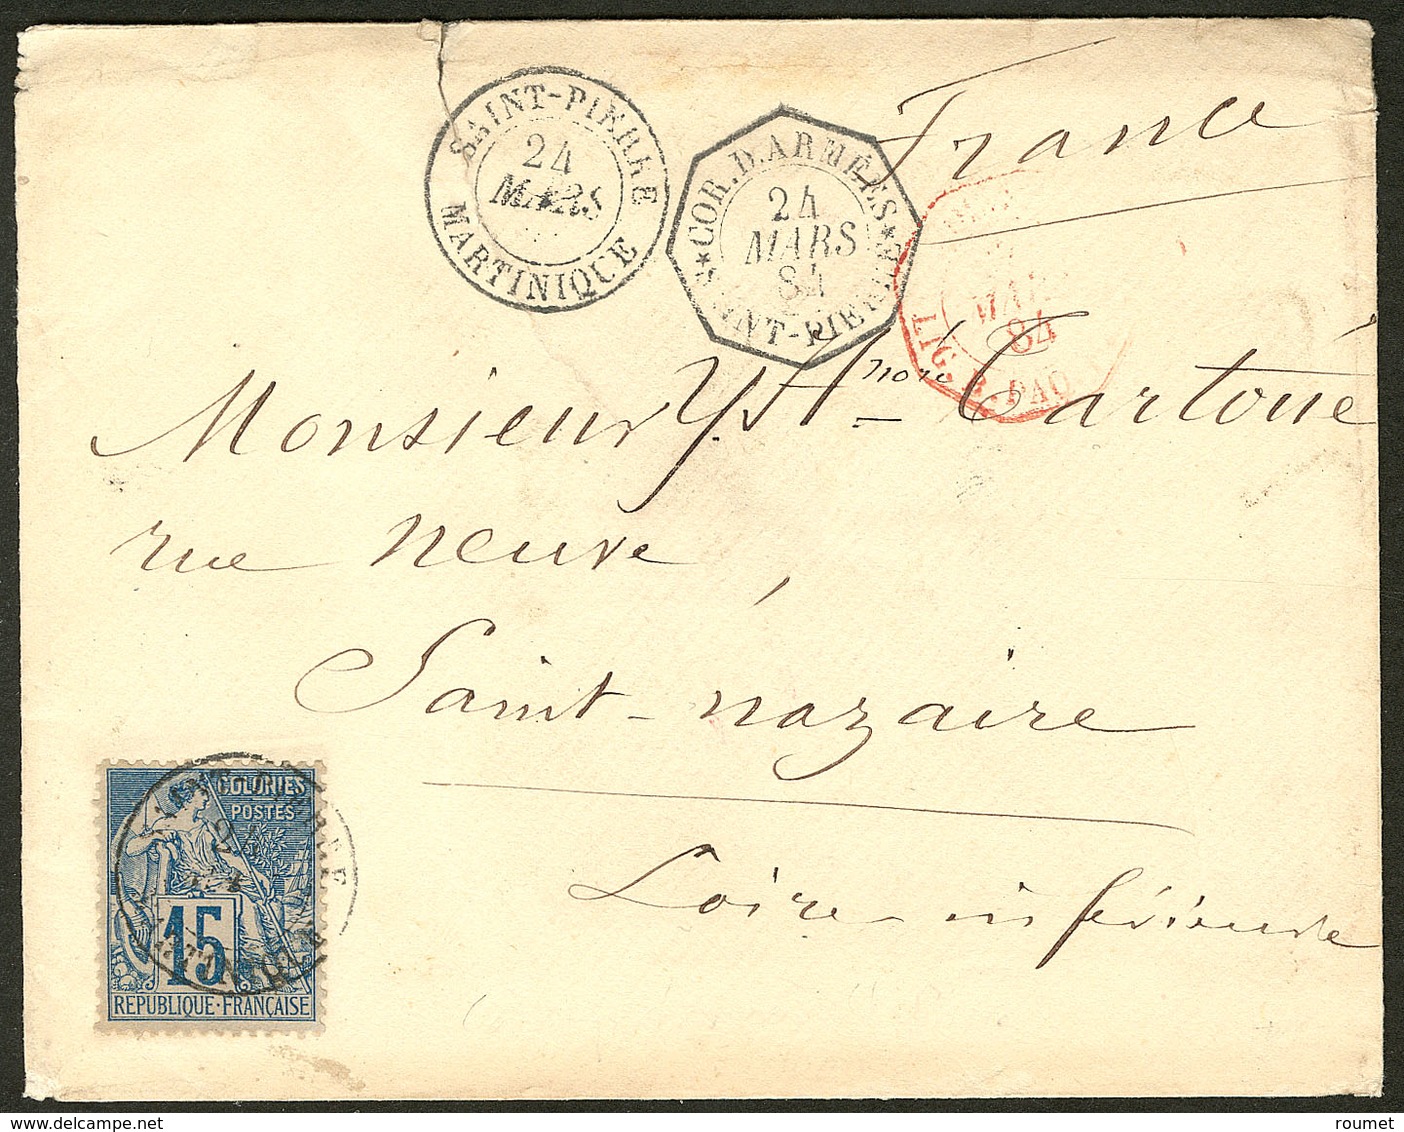 SAINT-PIERRE
24
MARS
MARTINIQUE
COR. D. ARMÉES
24
MARS
84
SAINT-PIERRE
France
MARS
84
LIG. B. PAQ
Monsieur
rue neuve,
Saint-nazaire
Loire inférieure
COLONIES
POSTES
24
15
REPUBLIQUE·FRANÇAISE
roumet
www.delcampe.net